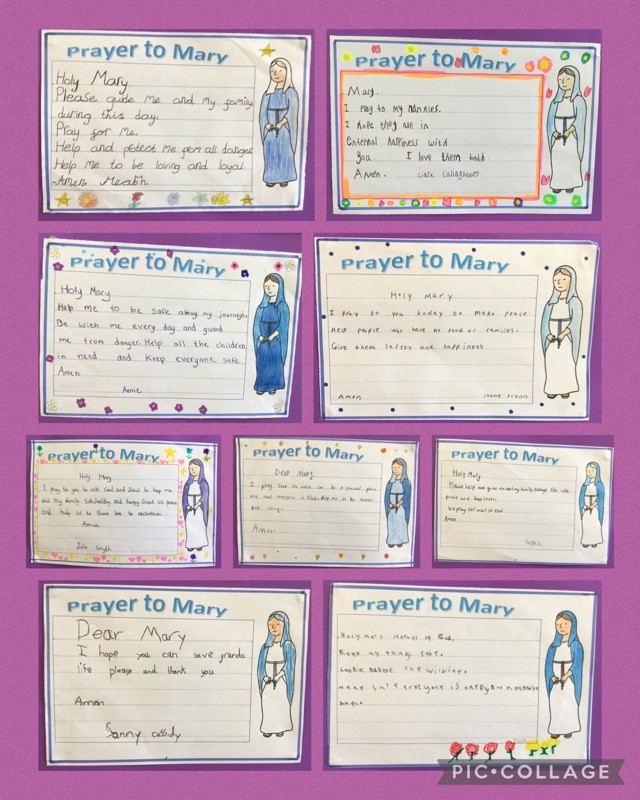 Prayer to Mary
Holy Mary
Please guide me and my family
during this day.
Pray for me.
Help and protect me from all danger
Help me to be loving and loyal.
Amen Meabh
Prayer to Mary
Mary.
I pray to my nannies.
I hope they are in
Enternal happiness with
you I love them both
Amen. Ciara Callaghan
Prayer to Mary
Holy Mary
Help me to be safe along my journeys
Be with me every day and guard
me from danger. Help all the children
in need and keep everyone safe
Amen
Annie
Prayer to Mary
Holy Mary
I pray to you today to make peace
Help people who have no food or families.
Give them safety and happiness
Amen
Prayer to Mary
Holy Mary
I pray to you to ask God and Jesus to keep me
and my family safe, healthy and happy. Grant us peace
and help us to share love to eachother.
Amen
Julia Smyth
Prayer to Mary
Dear Mary
I pray that the world can be a peaceful place
and loving.
Amen.
Prayer to Mary
Holy Mary
Please help and guide
peace and happiness.
Amen
Sophie
Prayer to Mary
Dear Mary
I hope you can save granda
life please and thank you
Amen
Sonny Cassidy
Prayer to Mary
Holy mary mother of God,
Keep my family safe.
Look after the wildlife.
make sure everyone is happy and
Amen.
PIC•COLLAGE